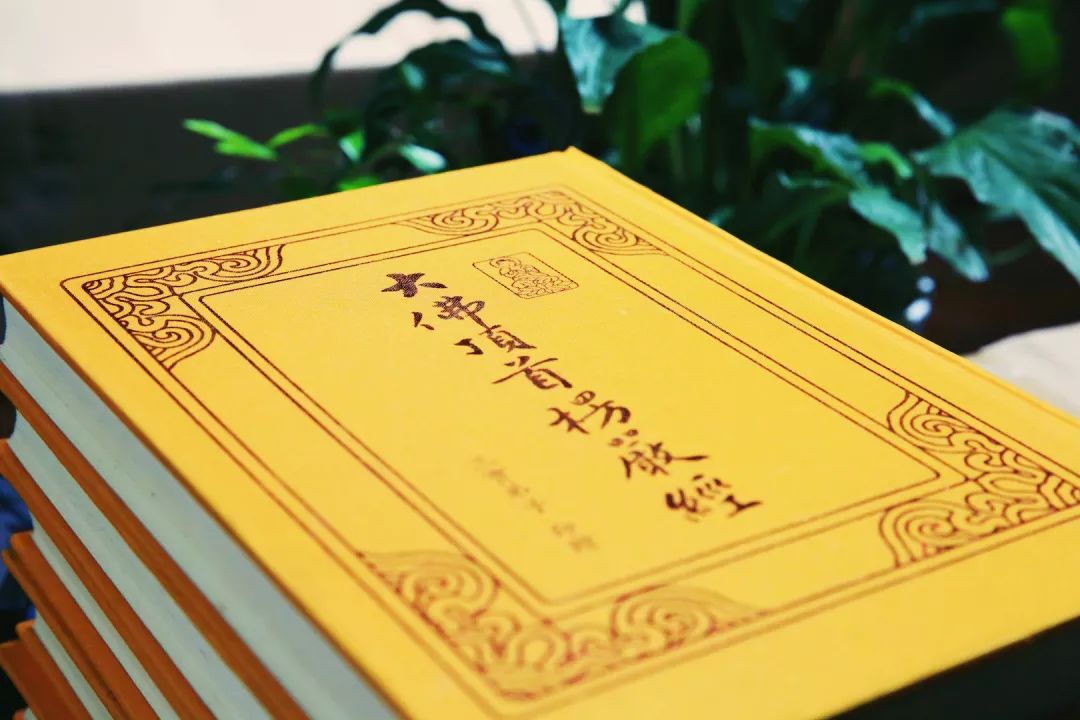 大佛頂首楞嚴經